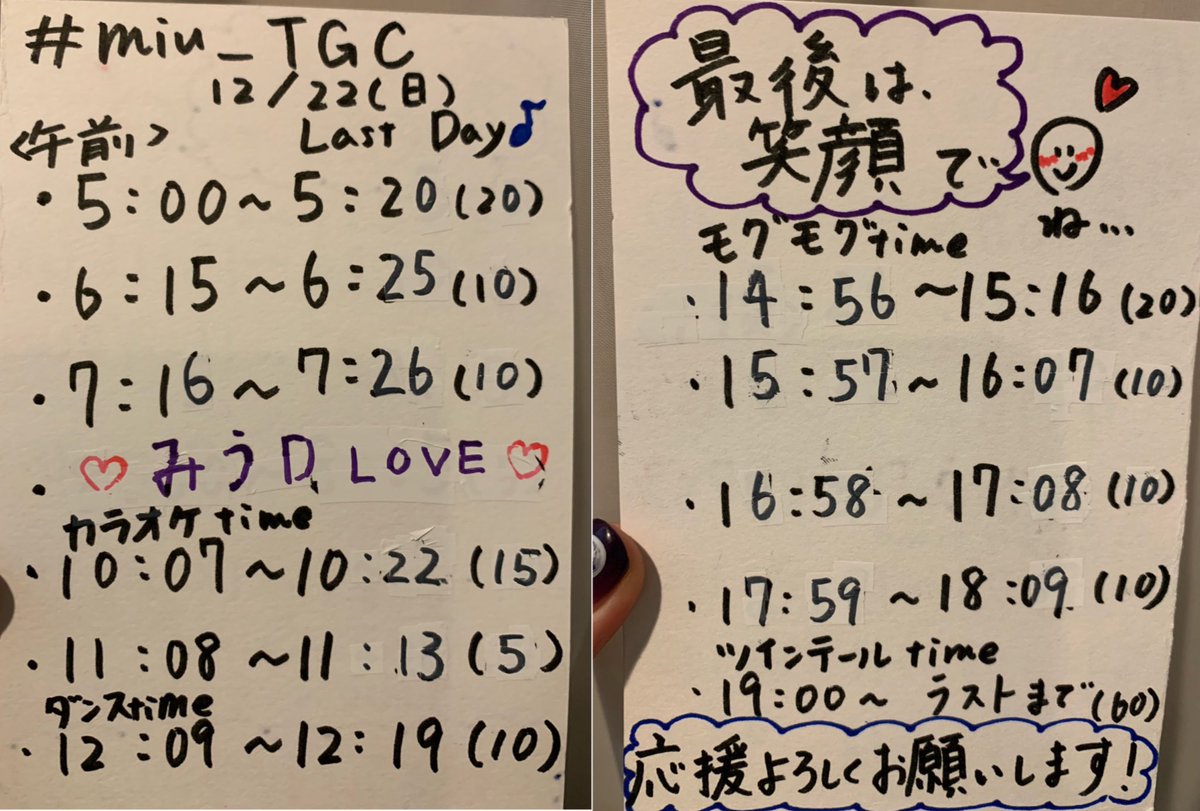 #miu_TGC
12/22(日)
<午前> Last Day♪
・5:00～5:20(20)
・6:15～6:25(10)
・7:16～7:26(10)
・♡みうD LOVE♡
カラオケtime
・10:07～10:22(15)
・11:08～11:13(5)
ダンスtime
・12:09～12:19(10)
最後は、
笑顔で
ね…
モグモグtime
・14:56～15:16(20)
・15:57～16:07(10)
・16:58～17:08(10)
・17:59～18:09(10)
ツインテールtime
・19:00～ラストまで(60)
応援よろしくお願いします!